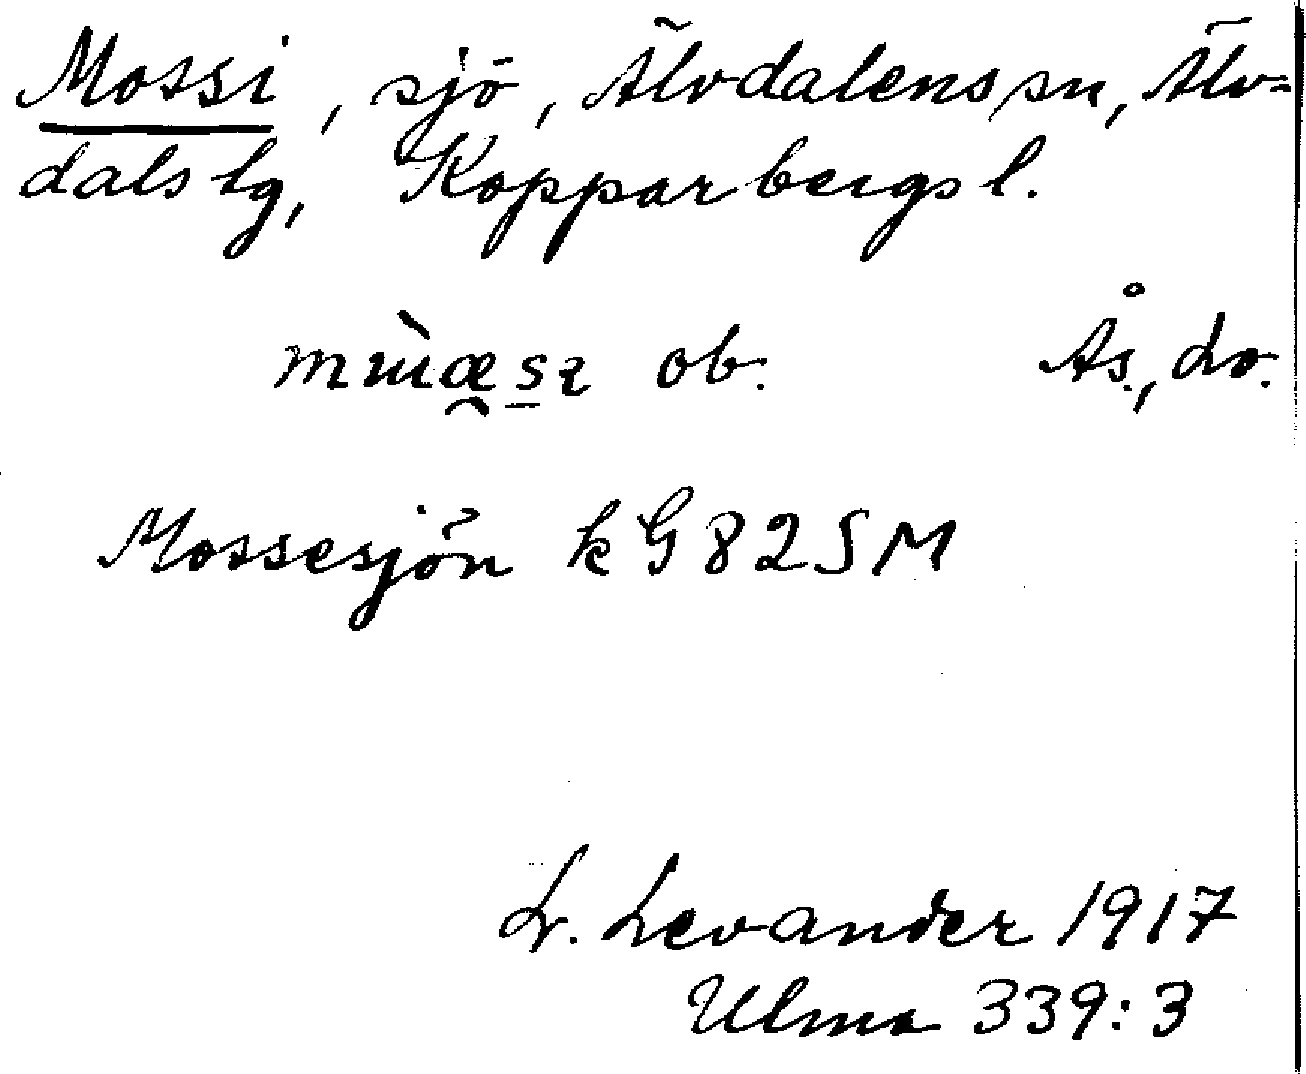 Mossi, sjö, Älvdalens sn, Älv-
dals lg, Kopparbergs l.
ob. Ås., Lv.
Mossesjön kG 82 SM
L. Levander 1917
Ulma 339:3